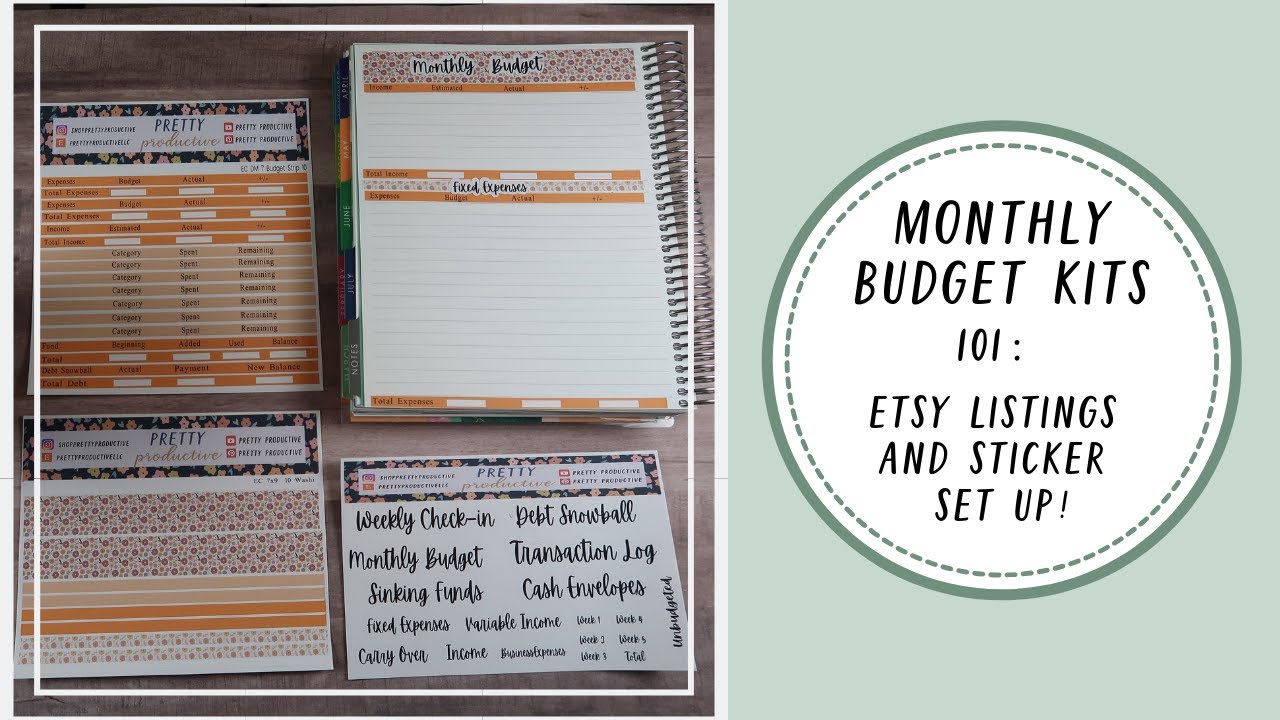 SHOPPRETTYPRODUCTIVE
PRETTYPRODUCTIVELLC
PRETTY
productive
PRETTY PRODUCTIVE
PRETTY PRODUCTIVE
EC DM 7 Budget Strip 10
Expenses Budget Actual +/-
Total Expenses
Expenses Budget Actual +/-
Total Expenses
Income Estimated Actual +/-
Total Income
Category Spent Remaining
Category Spent Remaining
Category Spent Remaining
Category Spent Remaining
Category Spent Remaining
Category Spent Remaining
Category Spent Remaining
Fund Beginning Added Used Balance
Total
Debt Snowball Actual Payment New Balance
Total Debt
Monthly Budget
Income Estimated Actual +/-
Total Income
Fixed Expenses
Expenses Budget Actual +/-
Total Expenses
APRIL
MAY
JUNE
FEBRUARY
JULY
MARCH
NOTES
SHOPPRETTYPRODUCTIVE
PRETTYPRODUCTIVELLC
PRETTY
productive
PRETTY PRODUCTIVE
PRETTY PRODUCTIVE
EC 7x9 10 Washi
SHOPPRETTYPRODUCTIVE
PRETTYPRODUCTIVELLC
PRETTY
productive
PRETTY PRODUCTIVE
PRETTY PRODUCTIVE
Weekly Check-in Debt Snowball
Monthly Budget Transaction Log
Sinking Funds Cash Envelopes
Fixed Expenses Variable Income Week 1 Week 4
Week 2 Week 5
Carry Over Income BusinessExpenses Week 3 Total
Unbudgeted
MONTHLY
BUDGET KITS
101:
ETSY LISTINGS
AND STICKER
SET UP!